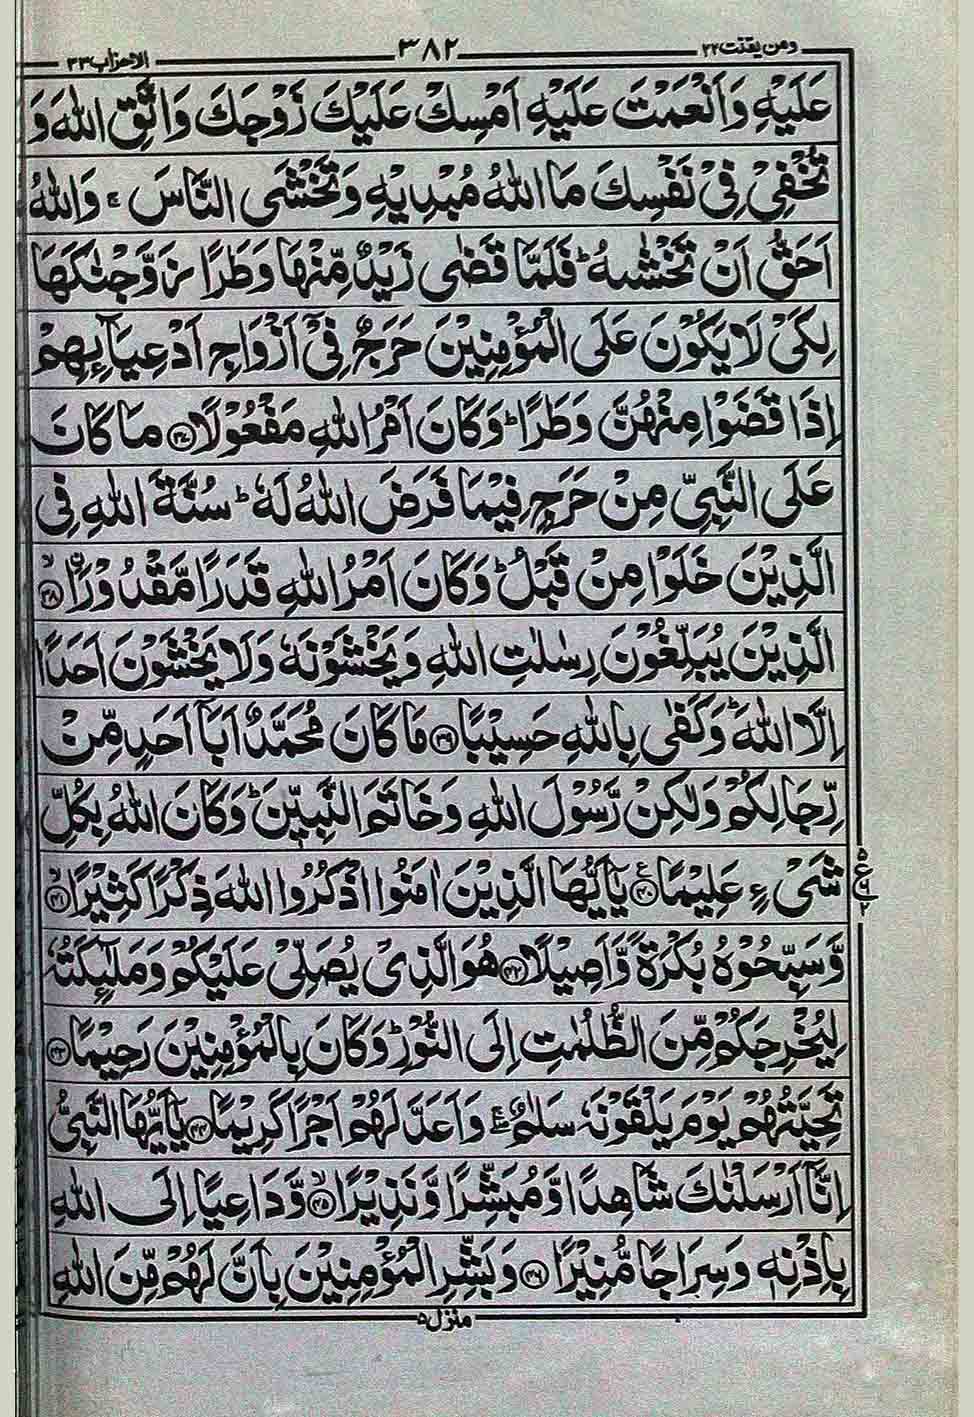 ومن يقنت ٢٢ ٣٨٢ الاحزاب ٣٣
عَلَيْهِ وَاَنْعَمْتَ عَلَيْهِ اَمْسِكْ عَلَيْكَ زَوْجَكَ وَاتَّقِ اللّٰهَ وَ
تُخْفِيْ فِيْ نَفْسِكَ مَا اللّٰهُ مُبْدِيْهِ وَتَخْشَى النَّاسَ ۚ وَاللّٰهُ
اَحَقُّ اَنْ تَخْشٰىهُ ؕ فَلَمَّا قَضٰى زَيْدٌ مِّنْهَا وَطَرًا زَوَّجْنٰكَهَا
لِكَيْ لَا يَكُوْنَ عَلَى الْمُؤْمِنِيْنَ حَرَجٌ فِيْۤ اَزْوَاجِ اَدْعِيَآىِٕهِمْ
اِذَا قَضَوْا مِنْهُنَّ وَطَرًا ؕ وَكَانَ اَمْرُ اللّٰهِ مَفْعُوْلًا ۝۳۷ مَا كَانَ
عَلَى النَّبِيِّ مِنْ حَرَجٍ فِيْمَا فَرَضَ اللّٰهُ لَهٗ ؕ سُنَّةَ اللّٰهِ فِي
الَّذِيْنَ خَلَوْا مِنْ قَبْلُ ؕ وَكَانَ اَمْرُ اللّٰهِ قَدَرًا مَّقْدُوْرَا ۝۳۸ ۙ
الَّذِيْنَ يُبَلِّغُوْنَ رِسٰلٰتِ اللّٰهِ وَيَخْشَوْنَهٗ وَلَا يَخْشَوْنَ اَحَدًا
اِلَّا اللّٰهَ ؕ وَكَفٰى بِاللّٰهِ حَسِيْبًا ۝۳۹ مَا كَانَ مُحَمَّدٌ اَبَاۤ اَحَدٍ مِّنْ
رِّجَالِكُمْ وَلٰكِنْ رَّسُوْلَ اللّٰهِ وَخَاتَمَ النَّبِيّٖنَ ؕ وَكَانَ اللّٰهُ بِكُلِّ
شَيْءٍ عَلِيْمًا ۝۴۰ ع يٰۤاَيُّهَا الَّذِيْنَ اٰمَنُوا اذْكُرُوا اللّٰهَ ذِكْرًا كَثِيْرًا ۝۴۱ ۙ
وَّسَبِّحُوْهُ بُكْرَةً وَّاَصِيْلًا ۝۴۲ هُوَ الَّذِيْ يُصَلِّيْ عَلَيْكُمْ وَمَلٰٓىِٕكَتُهٗ
لِيُخْرِجَكُمْ مِّنَ الظُّلُمٰتِ اِلَى النُّوْرِ ؕ وَكَانَ بِالْمُؤْمِنِيْنَ رَحِيْمًا ۝۴۳
تَحِيَّتُهُمْ يَوْمَ يَلْقَوْنَهٗ سَلٰمٌ ۖۚ وَاَعَدَّ لَهُمْ اَجْرًا كَرِيْمًا ۝۴۴ يٰۤاَيُّهَا النَّبِيُّ
اِنَّاۤ اَرْسَلْنٰكَ شَاهِدًا وَّمُبَشِّرًا وَّنَذِيْرًا ۝۴۵ ۙ وَّدَاعِيًا اِلَى اللّٰهِ
بِاِذْنِهٖ وَسِرَاجًا مُّنِيْرًا ۝۴۶ وَبَشِّرِ الْمُؤْمِنِيْنَ بِاَنَّ لَهُمْ مِّنَ اللّٰهِ
منزل ٥